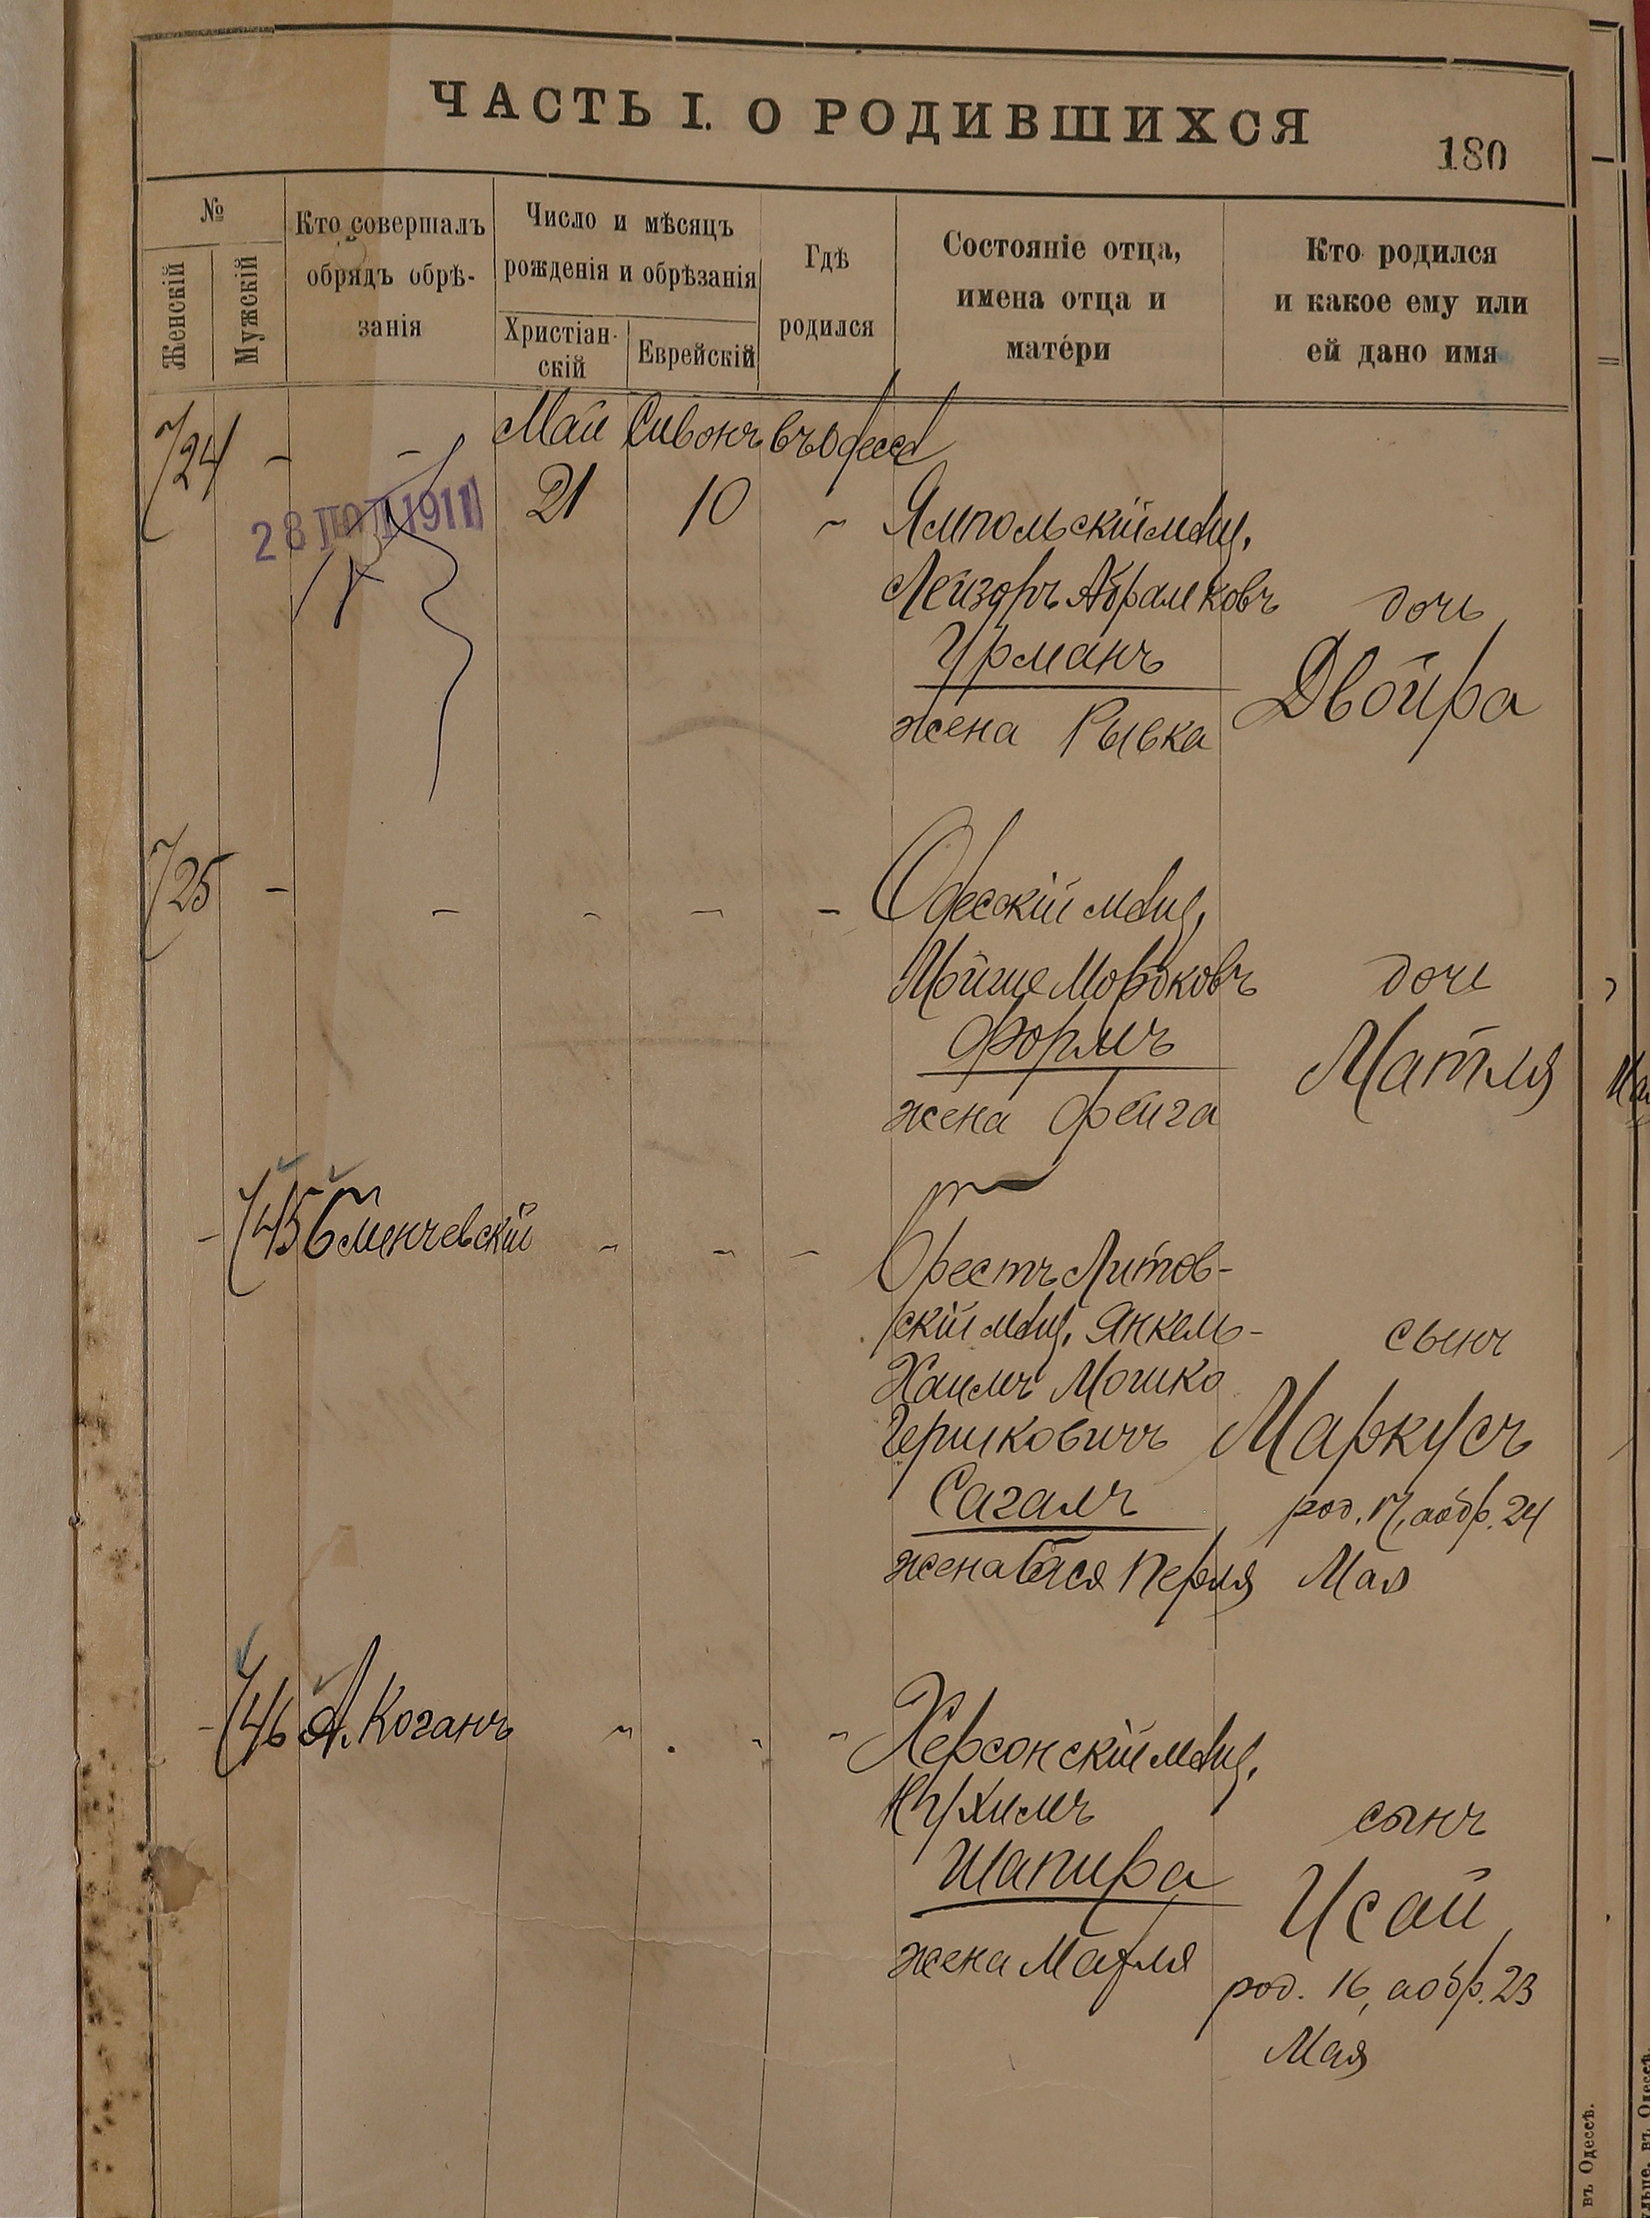 ЧАСТЬ I. О РОДИВШИХСЯ
180
№
Женскій
Мужскій
Кто совершалъ
обрядъ обрѣ-
занія
Число и мѣсяцъ
рожденія и обрѣзанія
Христіан-
скій
Еврейскій
Гдѣ
родился
Состояніе отца,
имена отца и
матери
Кто родился
и какое ему или
ей дано имя
724 - - Май Сивонъ въ Одессѣ
28 ІЮЛ 1911
21 10 " Ямпольскій мѣщ.
Лейзоръ Абрамковъ дочь
Урманъ Двойра
жена Рывка
725 - - - - - Одесскій мѣщ.
Мойше Мордковъ дочь
Формъ Матля
жена Фейга
- 745 Сменчевскій " " " Брестъ Литов-
скій мѣщ. Янкель- сынъ
Хаимъ Мошко
Гершковичъ Маркусъ
Сагалъ род. 17, а обр. 24
жена Бася Перля Мая
- 746 А. Коганъ " " " Херсонскій мѣщ.
Нухимъ сынъ
Шапира Исай
жена Матля род. 16, а обр. 23
Мая
въ Одессѣ.